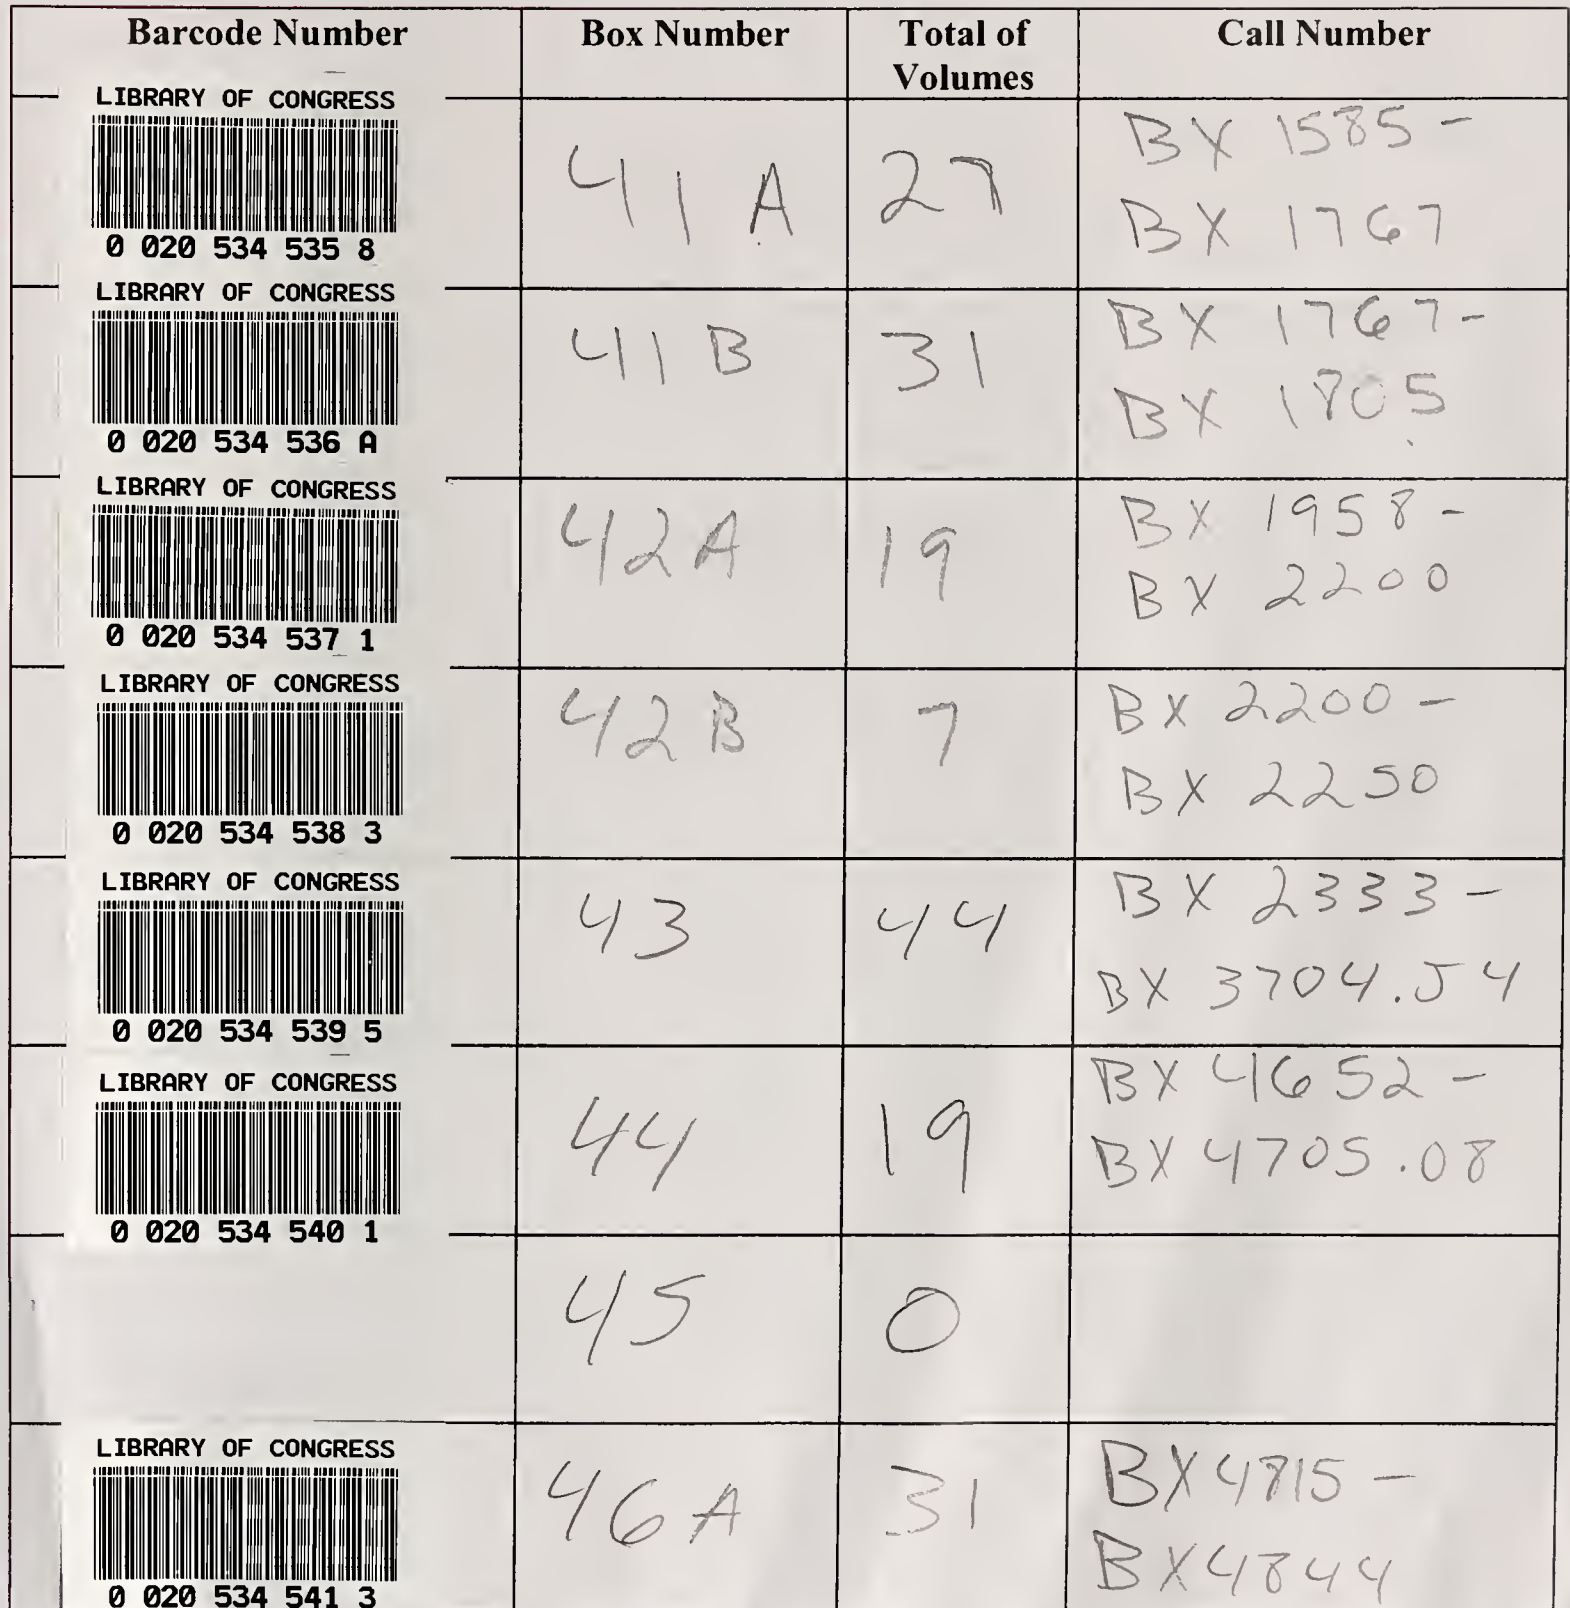 Barcode Number Box Number Total of Volumes Call Number
LIBRARY OF CONGRESS
0 020 534 535 8
41 A
27
BX 1585 -
BX 1767
LIBRARY OF CONGRESS
0 020 534 536 A
41 B
31
BX 1767-
BX 1805
LIBRARY OF CONGRESS
0 020 534 537 1
42A
19
BX 1958 -
BX 2200
LIBRARY OF CONGRESS
0 020 534 538 3
42 B
7
BX 2200 -
BX 2250
LIBRARY OF CONGRESS
0 020 534 539 5
43
44
BX 2333 -
BX 3704.J4
LIBRARY OF CONGRESS
0 020 534 540 1
44
19
BX 4652 -
BX 4705.08
45
0
LIBRARY OF CONGRESS
0 020 534 541 3
46 A
31
BX4815 -
BX4844